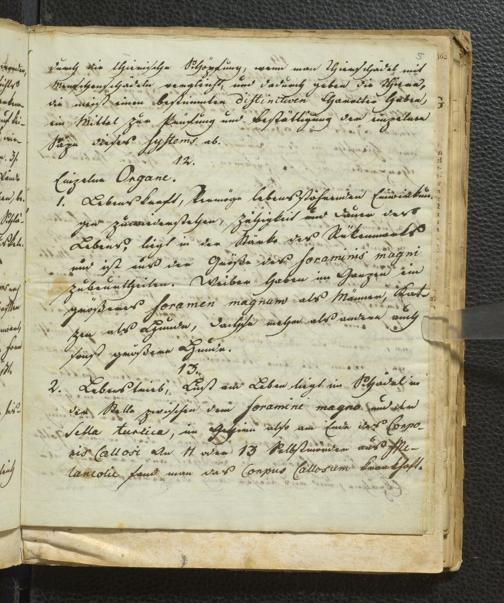 durch die thierische Schöpfung, wenn man Thierschädel mit
Menschenschädeln vergleicht, und dadurch geben die Thiere,
die meist einen bestimmten distinctiven Charakter haben,
ein Mittel zur Prüfung und Bestättigung der einzelnen
Säze dieses Systems ab.
12.
Einzelne Organe.
1. Lebenskraft, Vermöge lebensstöhrenden
gen zu wiederstehen, Zähigkeit und Dauer des
Lebens liegt in der Stärke des Rükenmarks
und ist aus der Größe des foraminis magni
zu beurtheilen. Weiber haben im Ganzen ein
größeres foramen magnum als Männer, Kat
zen als Hunde, Dachse mehr als andere auch
sonst größere Hunde.
13.
2. Lebenstrieb, Lust am Leben liegt im Schädel in
der Stelle zwischen dem foramine magno und der
Sella turcica, im Gehirn also am Ende des Corpo-
ris Callosi. An 11 oder 13 Selbstmörder aus Me-
lancolie fand man das Corpus Callosum krankhaft.